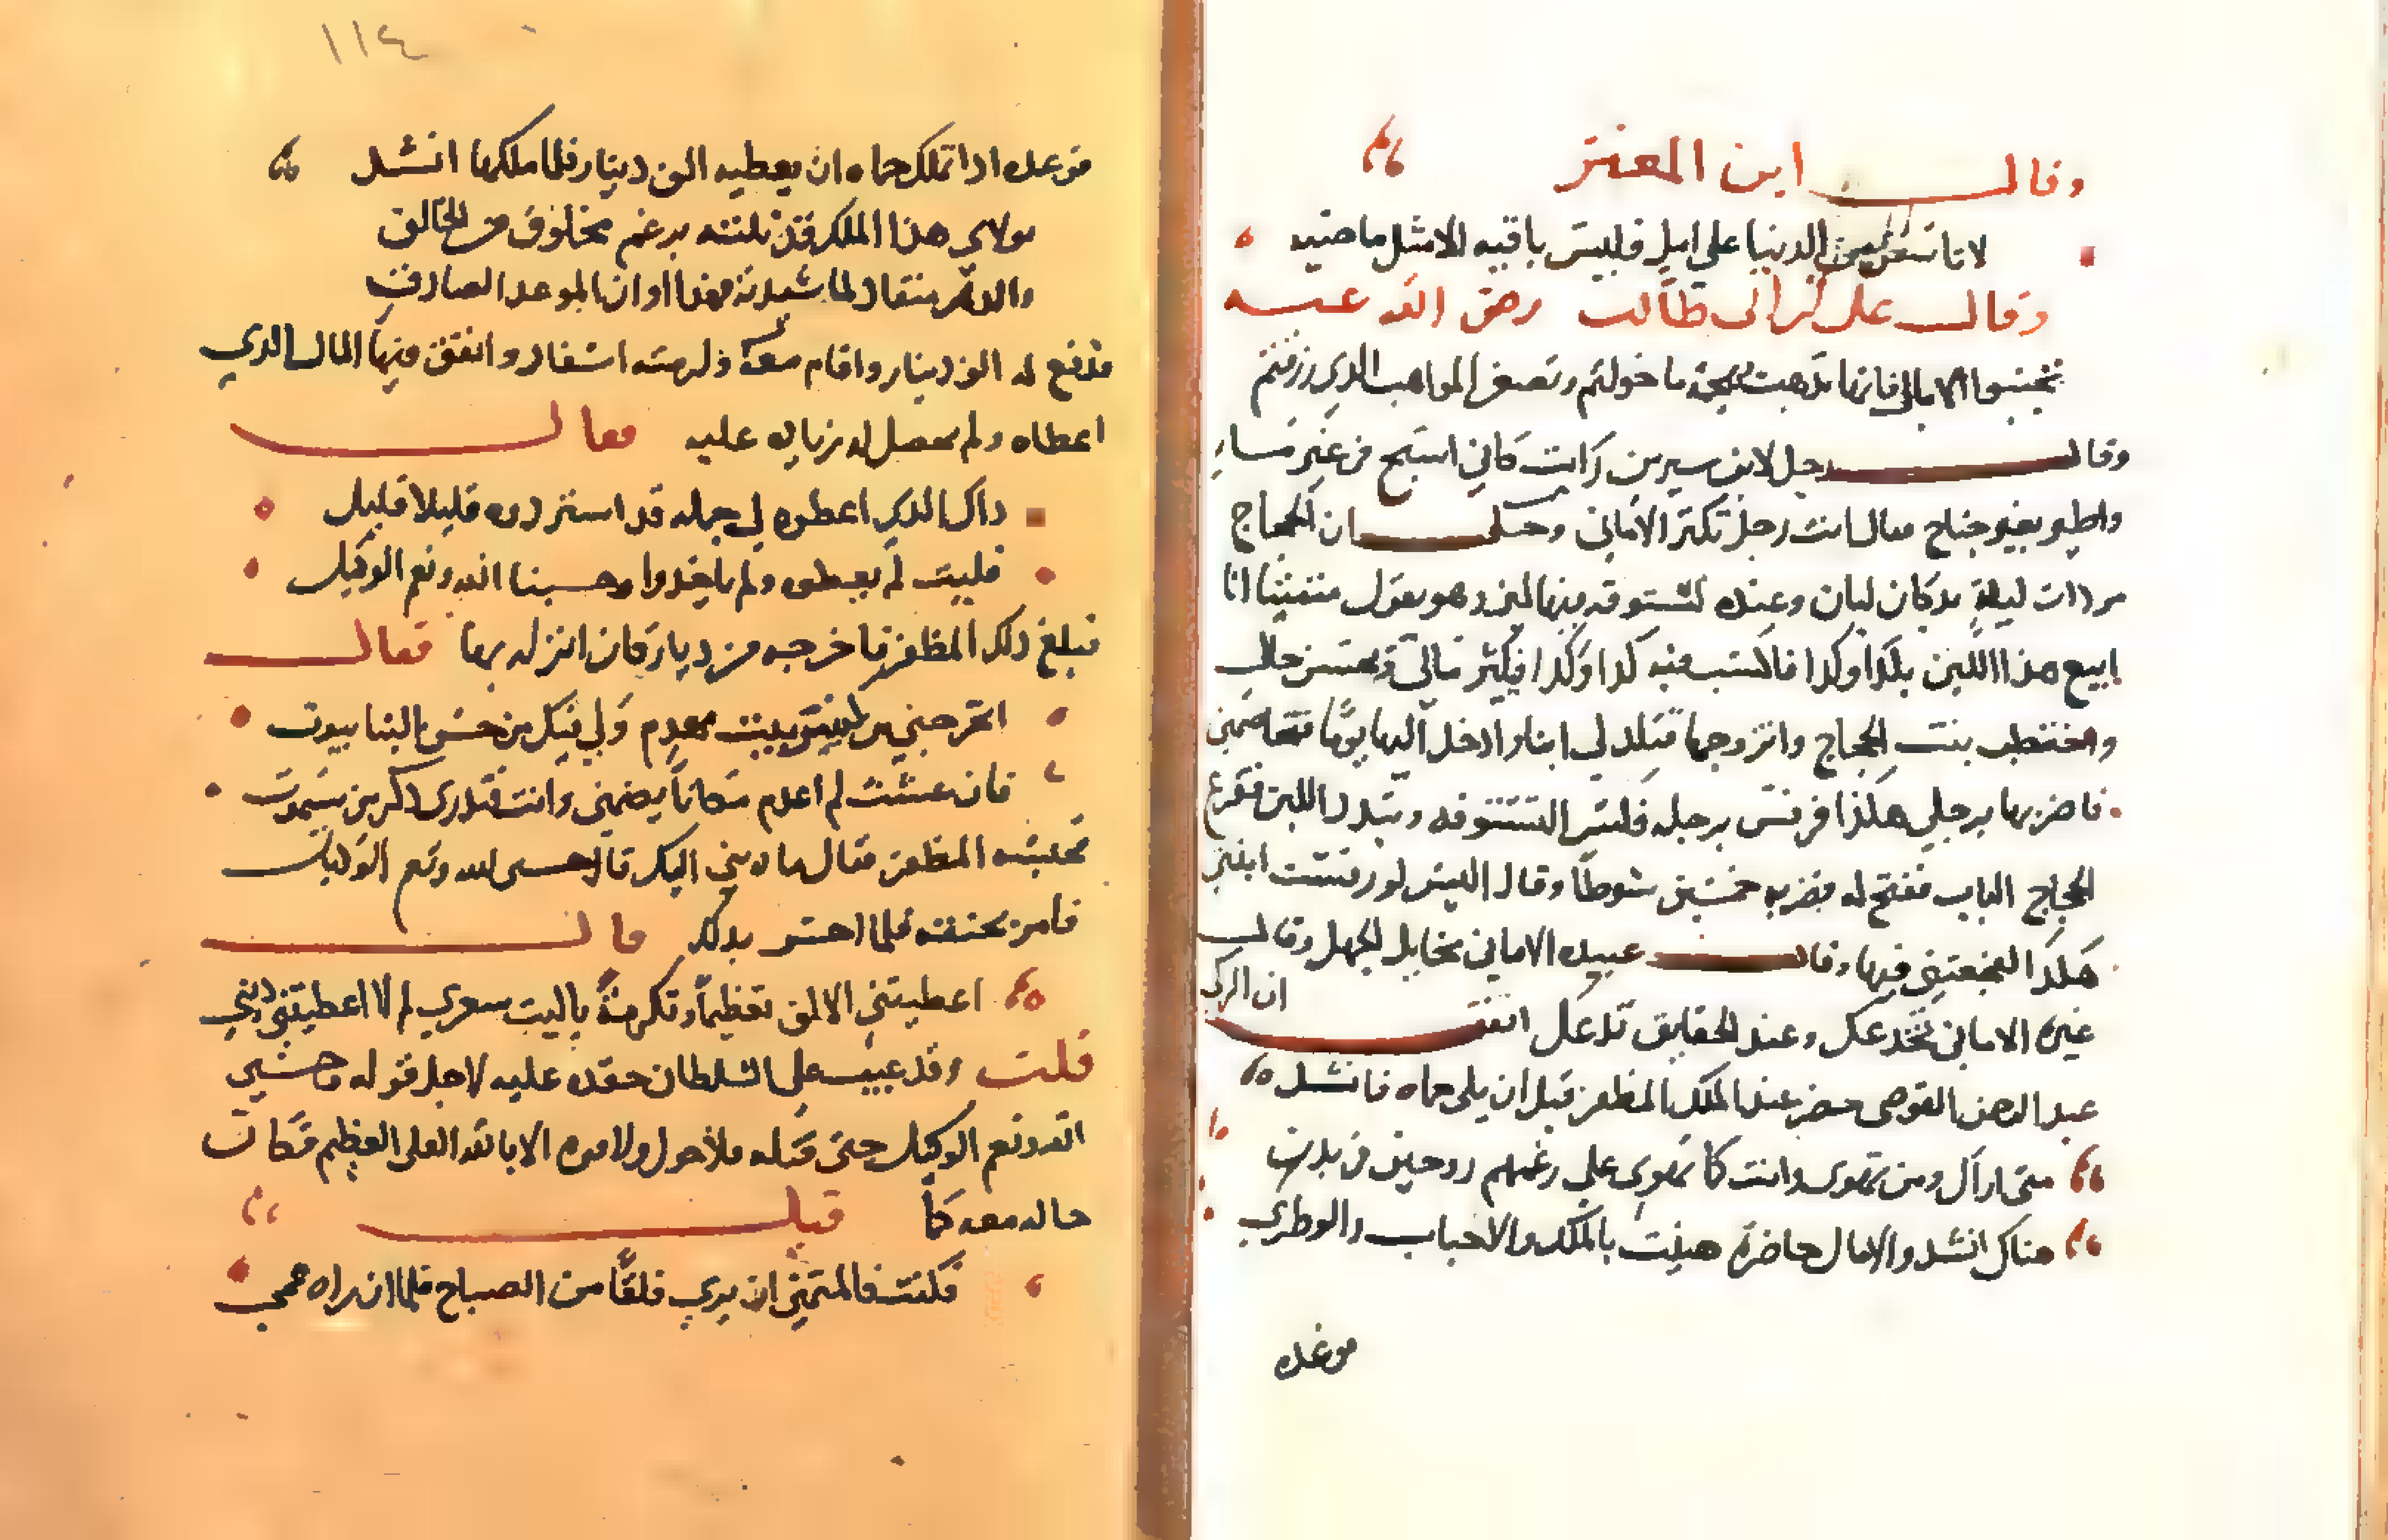 وقال ابن المعتز
لا تاسفن من الدنيا على امل فليس باقيه الا مثل ماضيه
وقال على بن ابى طالب رضى الله عنه
تجنبوا الامانى فانها تذهب بهجة ما خولتم وتصغر المواهب الدي رزقتم
وقال رجل لابن سيرين رايت كاني اسبح فى غير
واطير بغير جناح فقال انت رجل تكثر الاماني وحكى ان الحجاج
مر دات ليلة بدكان لبان وعنده بستوقه فيها لبن وهو يقول متمنيا انا
ابيع هذا اللبن بكدا وكدا فاكتسب فيه كدا وكدا فيكثر مالي ويحسن حالي
واختطب بنت الحجاج واتزوجها فتلد لي ابنا وادخل اليها يوما فتخاصمني
فاضربها برجلي هكذا فرفس برجله فكسر البستوقه وتبدد اللبن فقرع
الحجاج الباب ففتح له فضربه خمسين سوطا وقال اليس لو رفست ابنتي
هكدا لفجعتني فيها وقال عبيده الاماني مخايل الجهل وقال
غيره الاماني تخدعك وعند الحقايق تدعك اتفق ان الزكى
عبد الرحمن القوصى حضر عند الملك المظفر قبل ان يلى حماه فانشد
متى اراك ومن تهوى وانت كما تهوى على رغمهم روحين فى بدن
هناك انشد والامال حاضرة هنيت بالملك والاحباب والوطن
فوعده
١١٤
فوعده ادا تملك حماه ان يعطيه الف دينار فلما ملكها انشد
مولاي هذا الملك قد نلته برغم مخلوق من الخالق
والدهر منقاد لما شيته فهذا اوان الموعد الصادق
فدفع له الف دينار واقام معه ولزمته اسفار وانفق فيها المال الدي
اعطاه ولم يحصل له زياده عليه فقال
داك الذي اعطوه لي جمله قد استردوه قليلا قليل
فليت لم يعطوا ولم ياخدوا وحسبنا الله ونعم الوكيل
فبلغ دلك المظفر فاخرجه من دار كان انزله بها فقال
اتخرجني من بيت مهدم ولي فيك من حسن الثنا بيوت
فان عشت لم اعدم مكانا يضمني وانت فتدرى دكر من سيموت
فحبسه المظفر فقال ما دنبي اليك قال حسبى الله ونعم الوكيل
فامر بخنقه فلما احس بدلك قال
اعطيتني الالف تعظيما وتكرمة ياليت شعري ام اعطيتني ديتي
قلت وقد عيب على السلطان حقده عليه لاجل قوله وحسبي
الله ونعم الوكيل حتى قتله فلا حول ولا قوه الا بالله العلى العظيم فكانت
حاله معه كما قيل
فكنت فالمتمني ان يري فلقا من الصباح فلما ان راه عمي